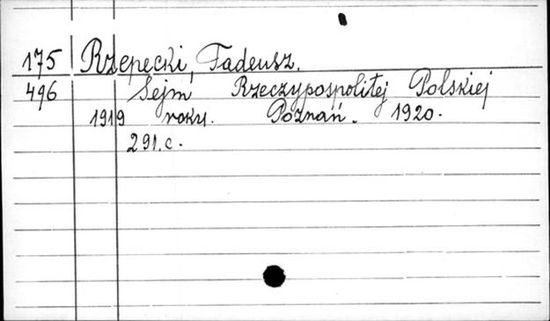 175 Rzepecki, Tadeusz.
496 Sejm Rzeczypospolitej Polskiej
1919 roku. Poznań. 1920.
291.c.